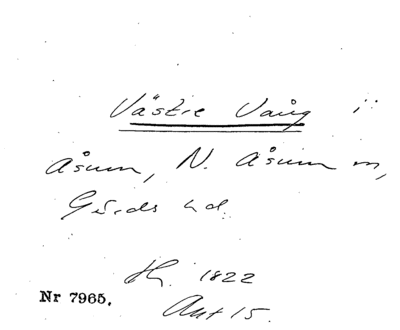 Västre Vång i
Åsum, N. Åsum m,
Gärds hd.
Hy. 1822
Nr 7965.
Akt 15.